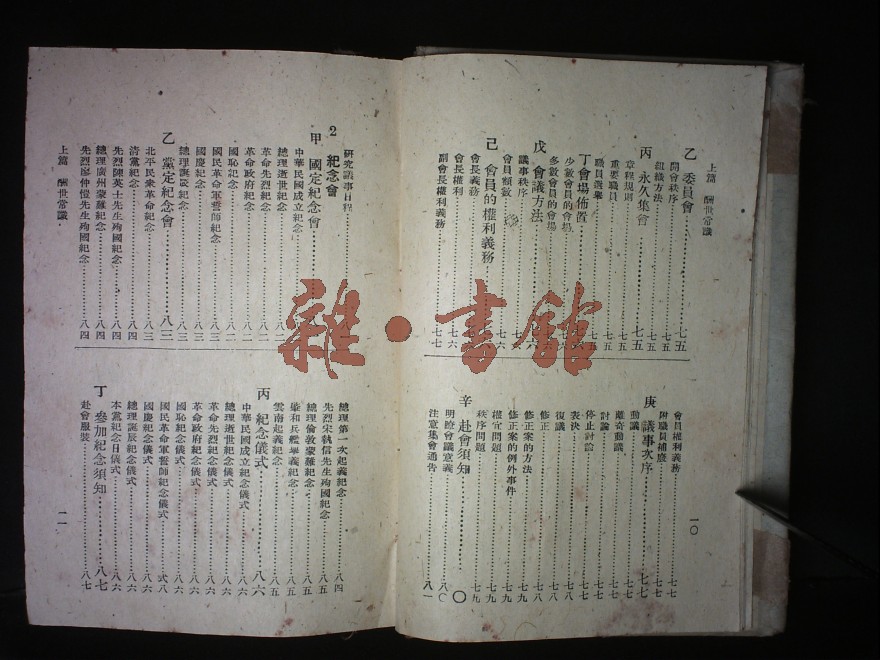 上篇 酬世常識
乙 委員會……七五
開會秩序……七五
組織方法……七五
丙 永久集會……七五
章程規則……七五
重要職員……七五
職員選舉……七五
丁 會場佈置……七六
少數會員的會場……七六
多數會員的會場……七六
戊 會議方法……七六
議事秩序……七六
會員額數……七六
己 會員的權利義務……七六
會長義務……七六
會長權利……七六
副會長權利義務……七七
會員權利義務……七七
附職員補應……七七
庚 議事次序……七七
動議……七七
離奇動議……七七
討論……七七
停止討論……七七
表決……七八
復議……七八
修正……七八
修正案的方法……七九
修正案的例外事件……七九
權宜問題……七九
秩序問題……七九
辛 赴會須知……〇
明瞭會議意義……八〇
注意集會通告……八一
一〇
研究議事日程
2 紀念會
甲 國定紀念會
中華民國成立紀念
總理逝世紀念……八二
革命先烈紀念……八二
革命政府紀念……八二
國恥紀念……八二
國民革命軍誓師紀念……八三
國慶紀念……八三
總理誕辰紀念……八三
乙 黨定紀念會……八三
北平民衆革命紀念……八三
清黨紀念……八四
先烈陳英士先生殉國紀念……八四
總理廣州蒙難紀念……八四
先烈廖仲愷先生殉國紀念……八四
總理第一次起義紀念……八四
先烈朱執信先生殉國紀念……八五
總理倫敦蒙難紀念……八五
肇和兵艦舉義紀念……八五
雲南起義紀念……八五
丙 紀念儀式……八六
中華民國成立紀念儀式……八六
總理逝世紀念儀式……八六
革命先烈紀念儀式……八六
革命政府紀念儀式……八六
國恥紀念儀式……八六
國民革命軍誓師紀念儀式……式八
國慶紀念儀式……八六
總理誕辰紀念儀式……八六
本黨紀念日儀式……八六
丁 參加紀念須知……八七
赴會服裝……八七
上篇 酬世常識
一一
雜·書舘